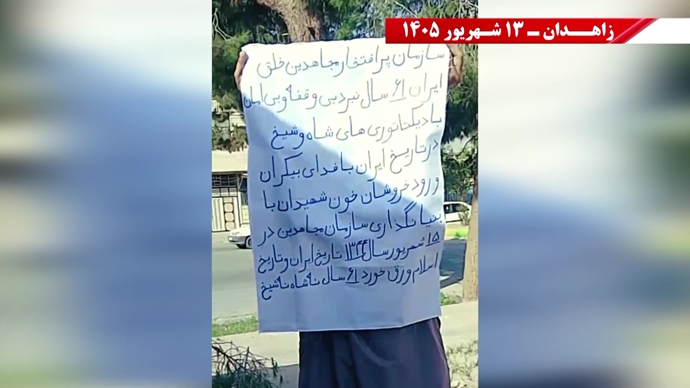 زاهدان – ۱۳ شهریور ۱۴۰۵
سازمان پر افتخار مجاهدین خلق
ایران ۶۱ سال نبرد بی وقفه و بی امان
با دیکتاتوری های شاه و شیخ
در تاریخ ایران با فدای بیکران
و رود خروشان خون شهیدان با
بنیانگذاری سازمان مجاهدین در
۱۵ شهریور سال ۱۳۴۴ تاریخ ایران و تاریخ
اسلام ورق خورد ۶۱ سال نه شاه نه شیخ